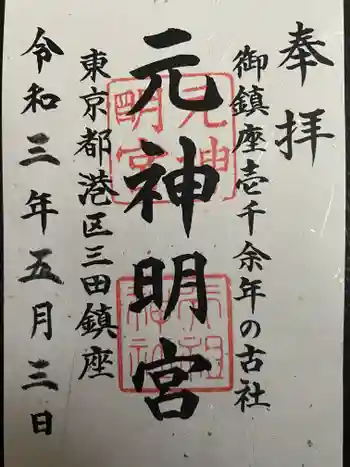 奉拝
御鎮座壱千余年の古社
元神明宮
東京都港区三田鎮座
令和三年五月三日
元神明宮